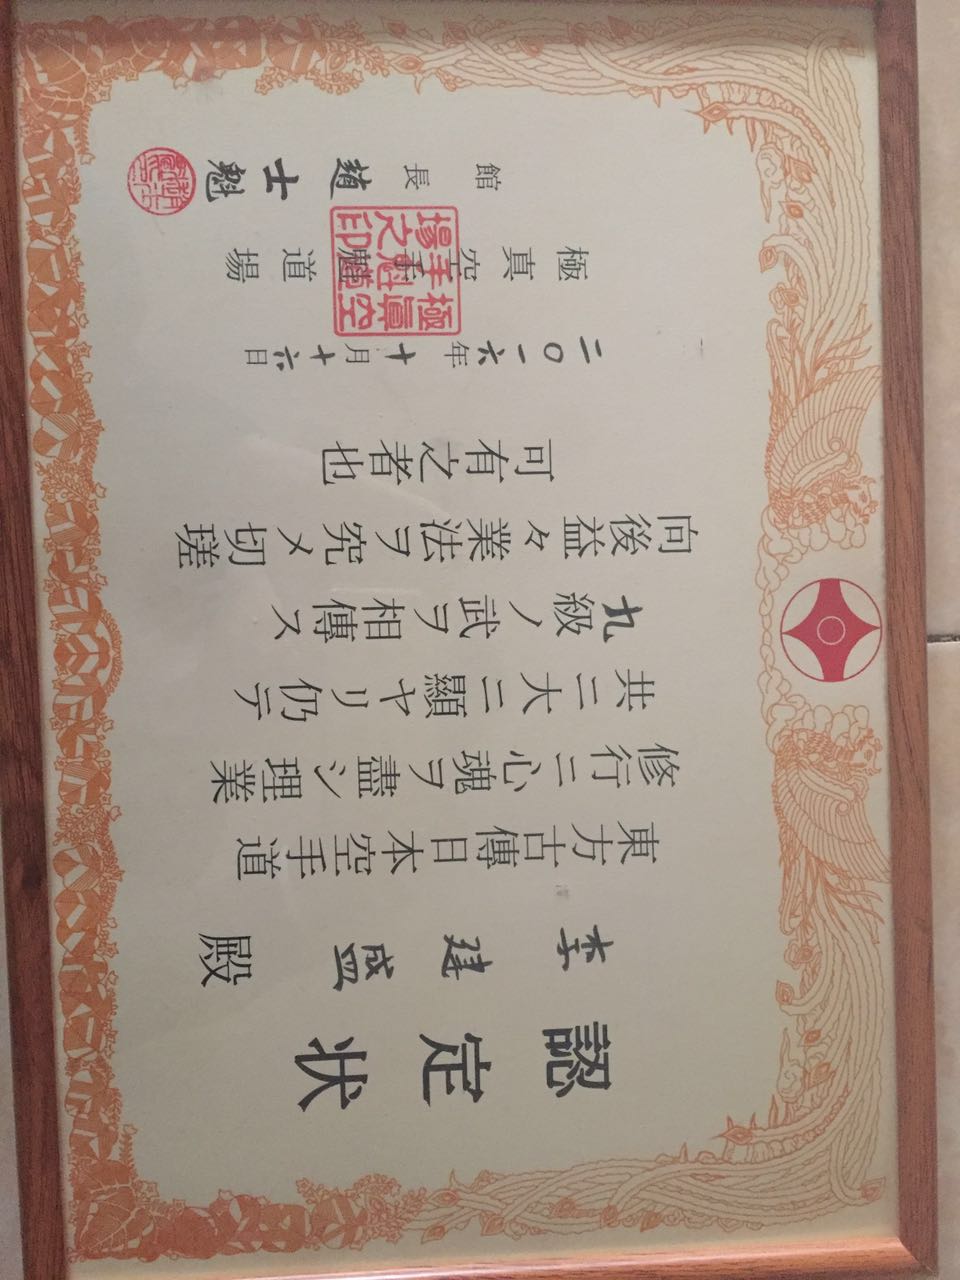 認定状
李建盛殿
東方古傳日本空手道
修行ニ心魂ヲ盡シ理業
共ニ大ニ顯ヤリ仍テ
九級ノ武ヲ相傳ス
向後益々業法ヲ究メ切瑳
可有之者也
二〇一六年十月十六日
極真空手魁道場
館長 趙士魁
極真空手魁道場之印